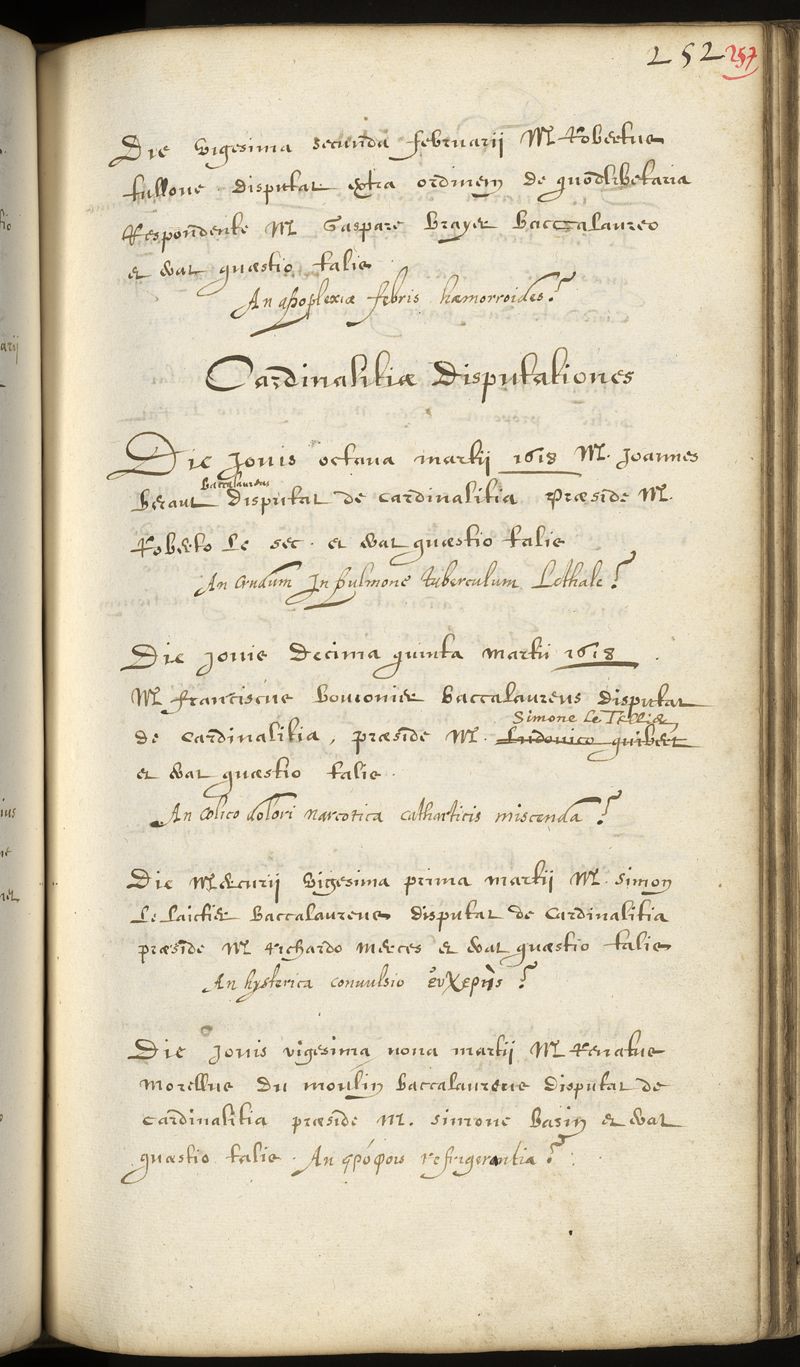 252 257
Die vigesima secunda februarii M Robertus
tulloue disputat extra ordinem de quodlibetaria
Respondente M Gaspare Brayer Baccalaureo
et erat quæstio talis
An apoplexiæ febris hæmorroides?
Cardinalitiæ Disputationes
Die Jovis octava martii 1618 M. Joannes
Baccalaureus
beraut disputat de cardinalitia Præside M.
Roberto Le sec. et erat quæstio talis
An crudum In pulmone tuberculum Lethale?
Die Jovis decima quinta martii 1618.
M franciscus Bouionier Baccalaureus disputat
Simone Le Tellier
de cardinalitia, præside M. Ludovico quibert
et erat quæstio talis.
An colico dolori narcotica catharticis miscenda?
Die Mercurii vigesima prima martii M. Simon
Le Laictier Baccalaureus disputat de cardinalitia
præside M Richardo merces et erat quæstio talis
An hysterica convulsio εὐχερὴς?
Die Jovis vigesima nona martii M Renatus
morellus du moulin baccalaureus disputat de
cardinalitia præside M. simone Basin et erat
quæstio talis. An refrigerantia?